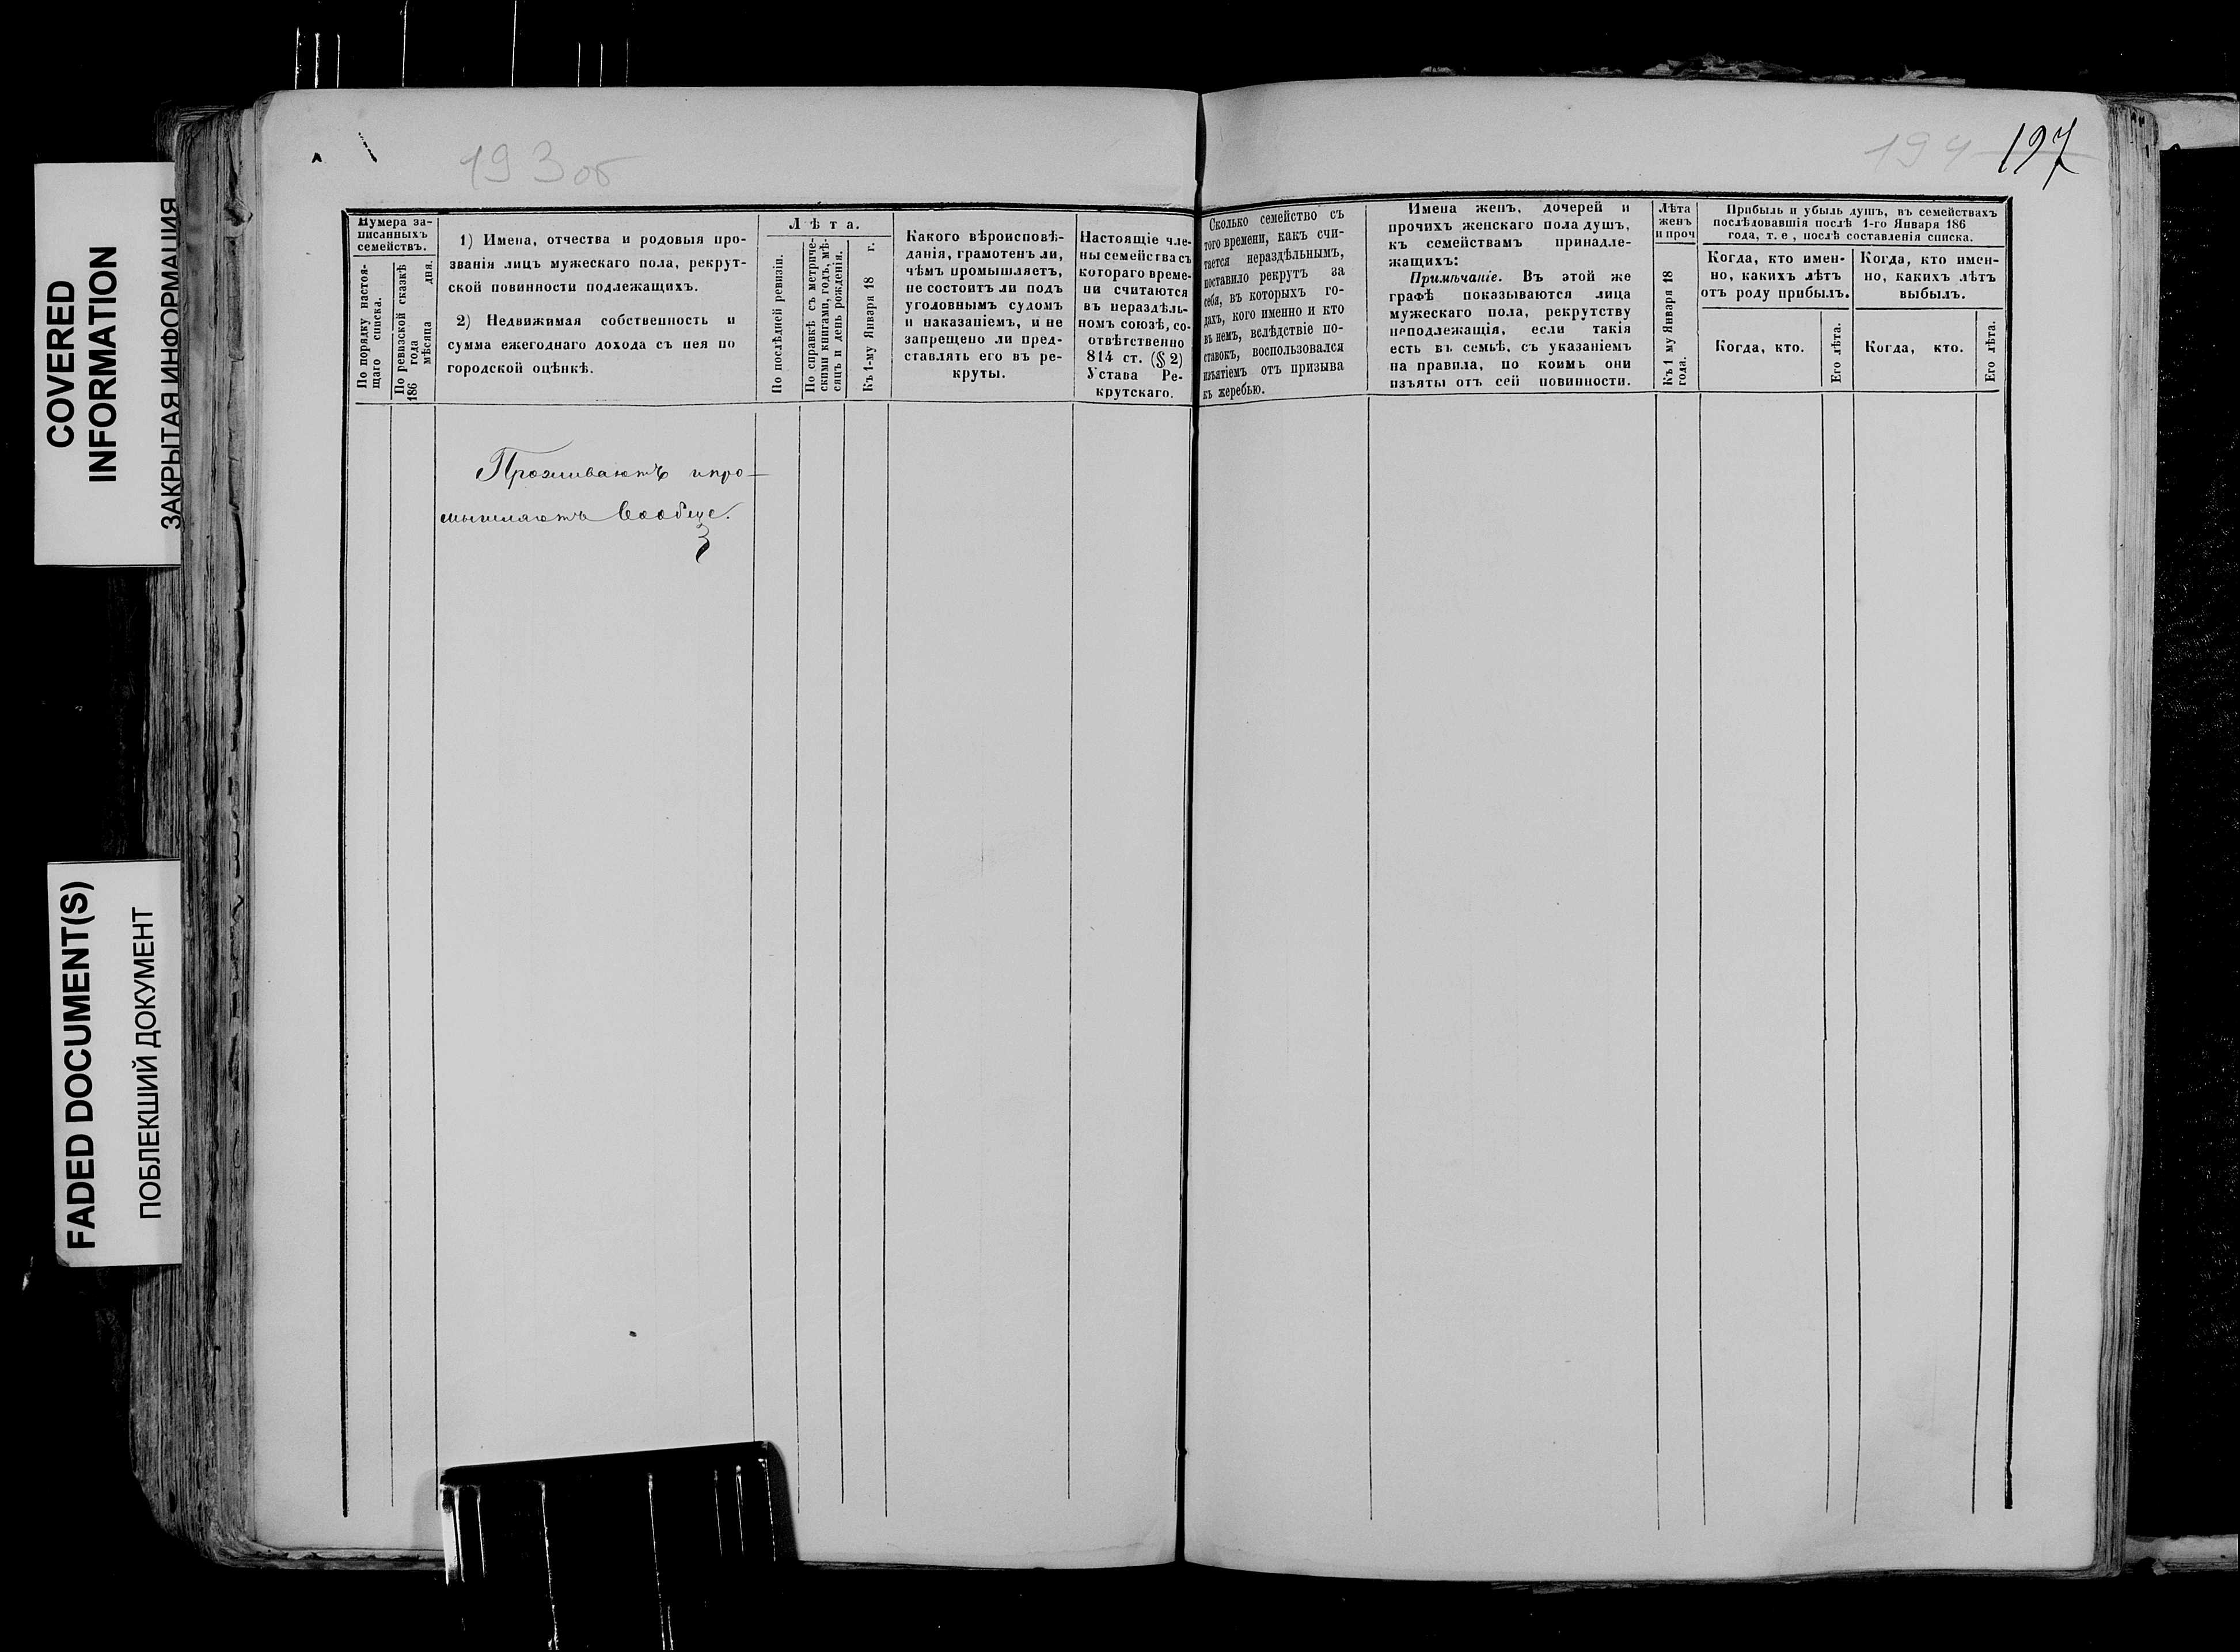 COVERED
INFORMATION
ЗАКРЫТАЯ ИНФОРМАЦИЯ
FADED DOCUMENT(S)
ПОБЛЕКШИЙ ДОКУМЕНТ
193 об
194 197
Нумера за-
писанныхъ
семействъ.
По порядку настоя-
щаго списка.
По ревизской сказкѣ
186 года
мѣсяца дня.
1) Имена, отчества и родовыя про-
званія лицъ мужескаго пола, рекрут-
ской повинности подлежащихъ.
2) Недвижимая собственность и
сумма ежегоднаго дохода съ нея по
городской оцѣнкѣ.
Лѣта.
По послѣдней ревизіи.
По справкѣ съ метриче-
скими книгами, годъ, мѣ-
сяцъ и день рожденія.
Къ 1-му Января 18 г.
Какого вѣроисповѣ-
данія, грамотенъ ли,
чѣмъ промышляетъ,
не состоитъ ли подъ
уголовнымъ судомъ
и наказаніемъ, и не
запрещено ли пред-
ставлять его въ ре-
круты.
Настоящіе чле-
ны семейства съ
котораго време-
ни считаются
въ нераздѣль-
номъ союзѣ, со-
отвѣтственно
814 ст. (§ 2)
Устава Ре-
крутскаго.
Сколько семейство съ
того времени, какъ счи-
тается нераздѣльнымъ,
поставило рекрутъ за
себя, въ которыхъ го-
дахъ, кого именно и кто
въ немъ, вслѣдствіе по-
ставокъ, воспользовался
изъятіемъ отъ призыва
къ жеребью.
Имена женъ, дочерей и
прочихъ женскаго пола душъ,
къ семействамъ принадле-
жащихъ:
Примѣчаніе. Въ этой же
графѣ показываются лица
мужескаго пола, рекрутству
неподлежащія, если такія
есть въ семьѣ, съ указаніемъ
на правила, по коимъ они
изъяты отъ сей повинности.
Лѣта
женъ
и проч
Къ 1 му Января 18
года.
Прибыль и убыль душъ, въ семействахъ
послѣдовавшія послѣ 1-го Января 186
года, т. е , послѣ составленія списка.
Когда, кто имен-
но, какихъ лѣтъ
отъ роду прибылъ.
Когда, кто.
Его лѣта.
Когда, кто имен-
но, какихъ лѣтъ
выбылъ.
Когда, кто.
Его лѣта.
Проживаютъ и про-
мышляютъ Вообще.